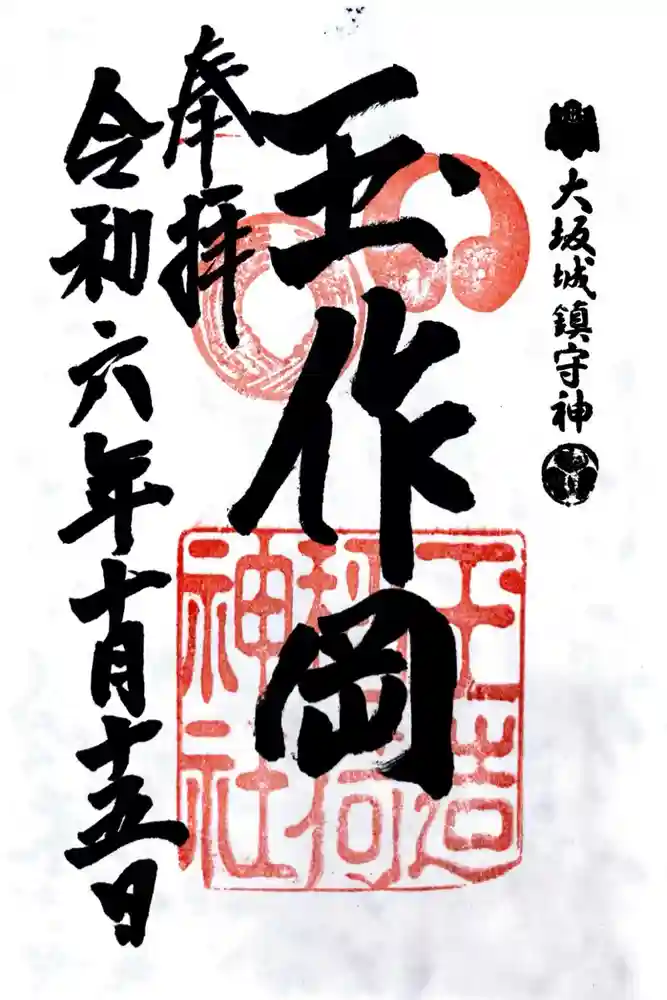 大坂城鎮守神
玉作岡
奉拝
令和六年十月十五日
玉造
稲荷
神社